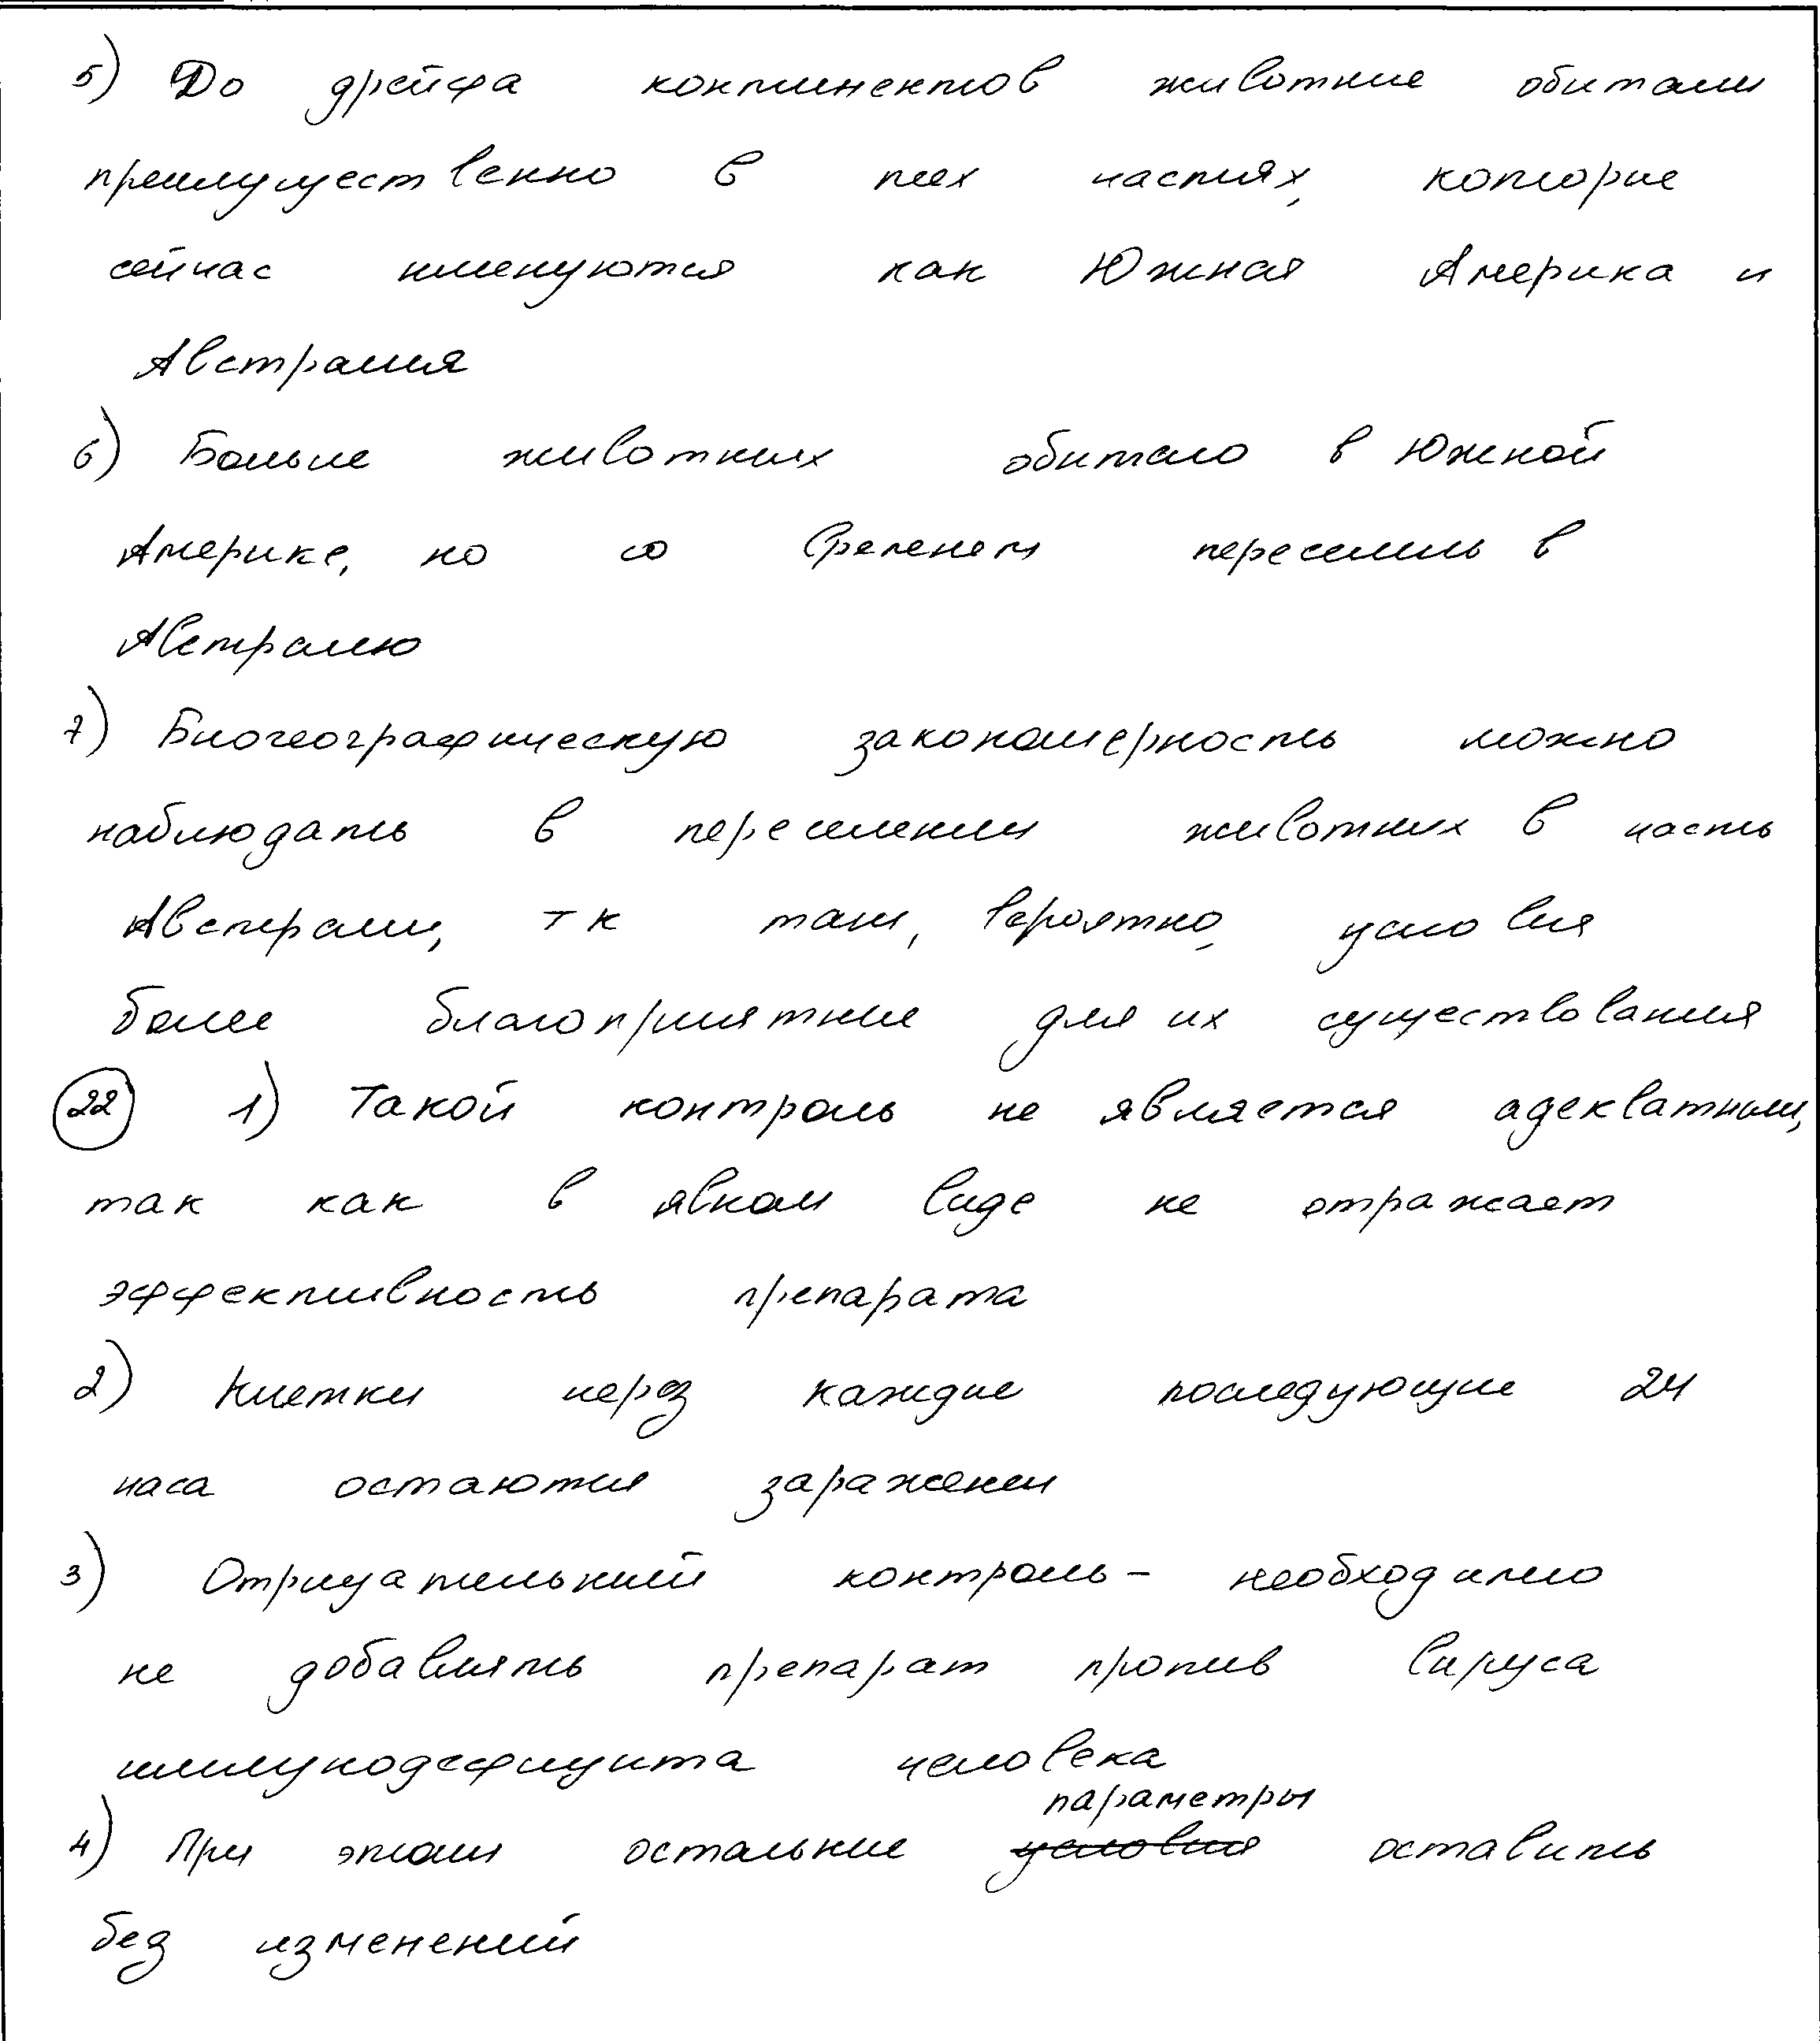 5) До дрейфа континентов животные обитали
преимущественно в тех частях, которые
сейчас именуются как Южная Америка и
Австралия
6) Больше животных обитало в Южной
Америке, но со временем переселись в
Австралию
7) Биогеографическую закономерность можно
наблюдать в переселении животных в часть
Австралии, тк там, вероятно, условия
более благоприятные для их существования
22 1) Такой контроль не является адекватным,
так как в явном виде не отражает
эффективность препарата
2) Клетки через каждые последующие 24
часа остаются заражены
3) Отрицательный контроль - необходимо
не добавлять препарат против вируса
иммунодефицита человека
параметры
4) При этом остальные условия оставить
без изменений